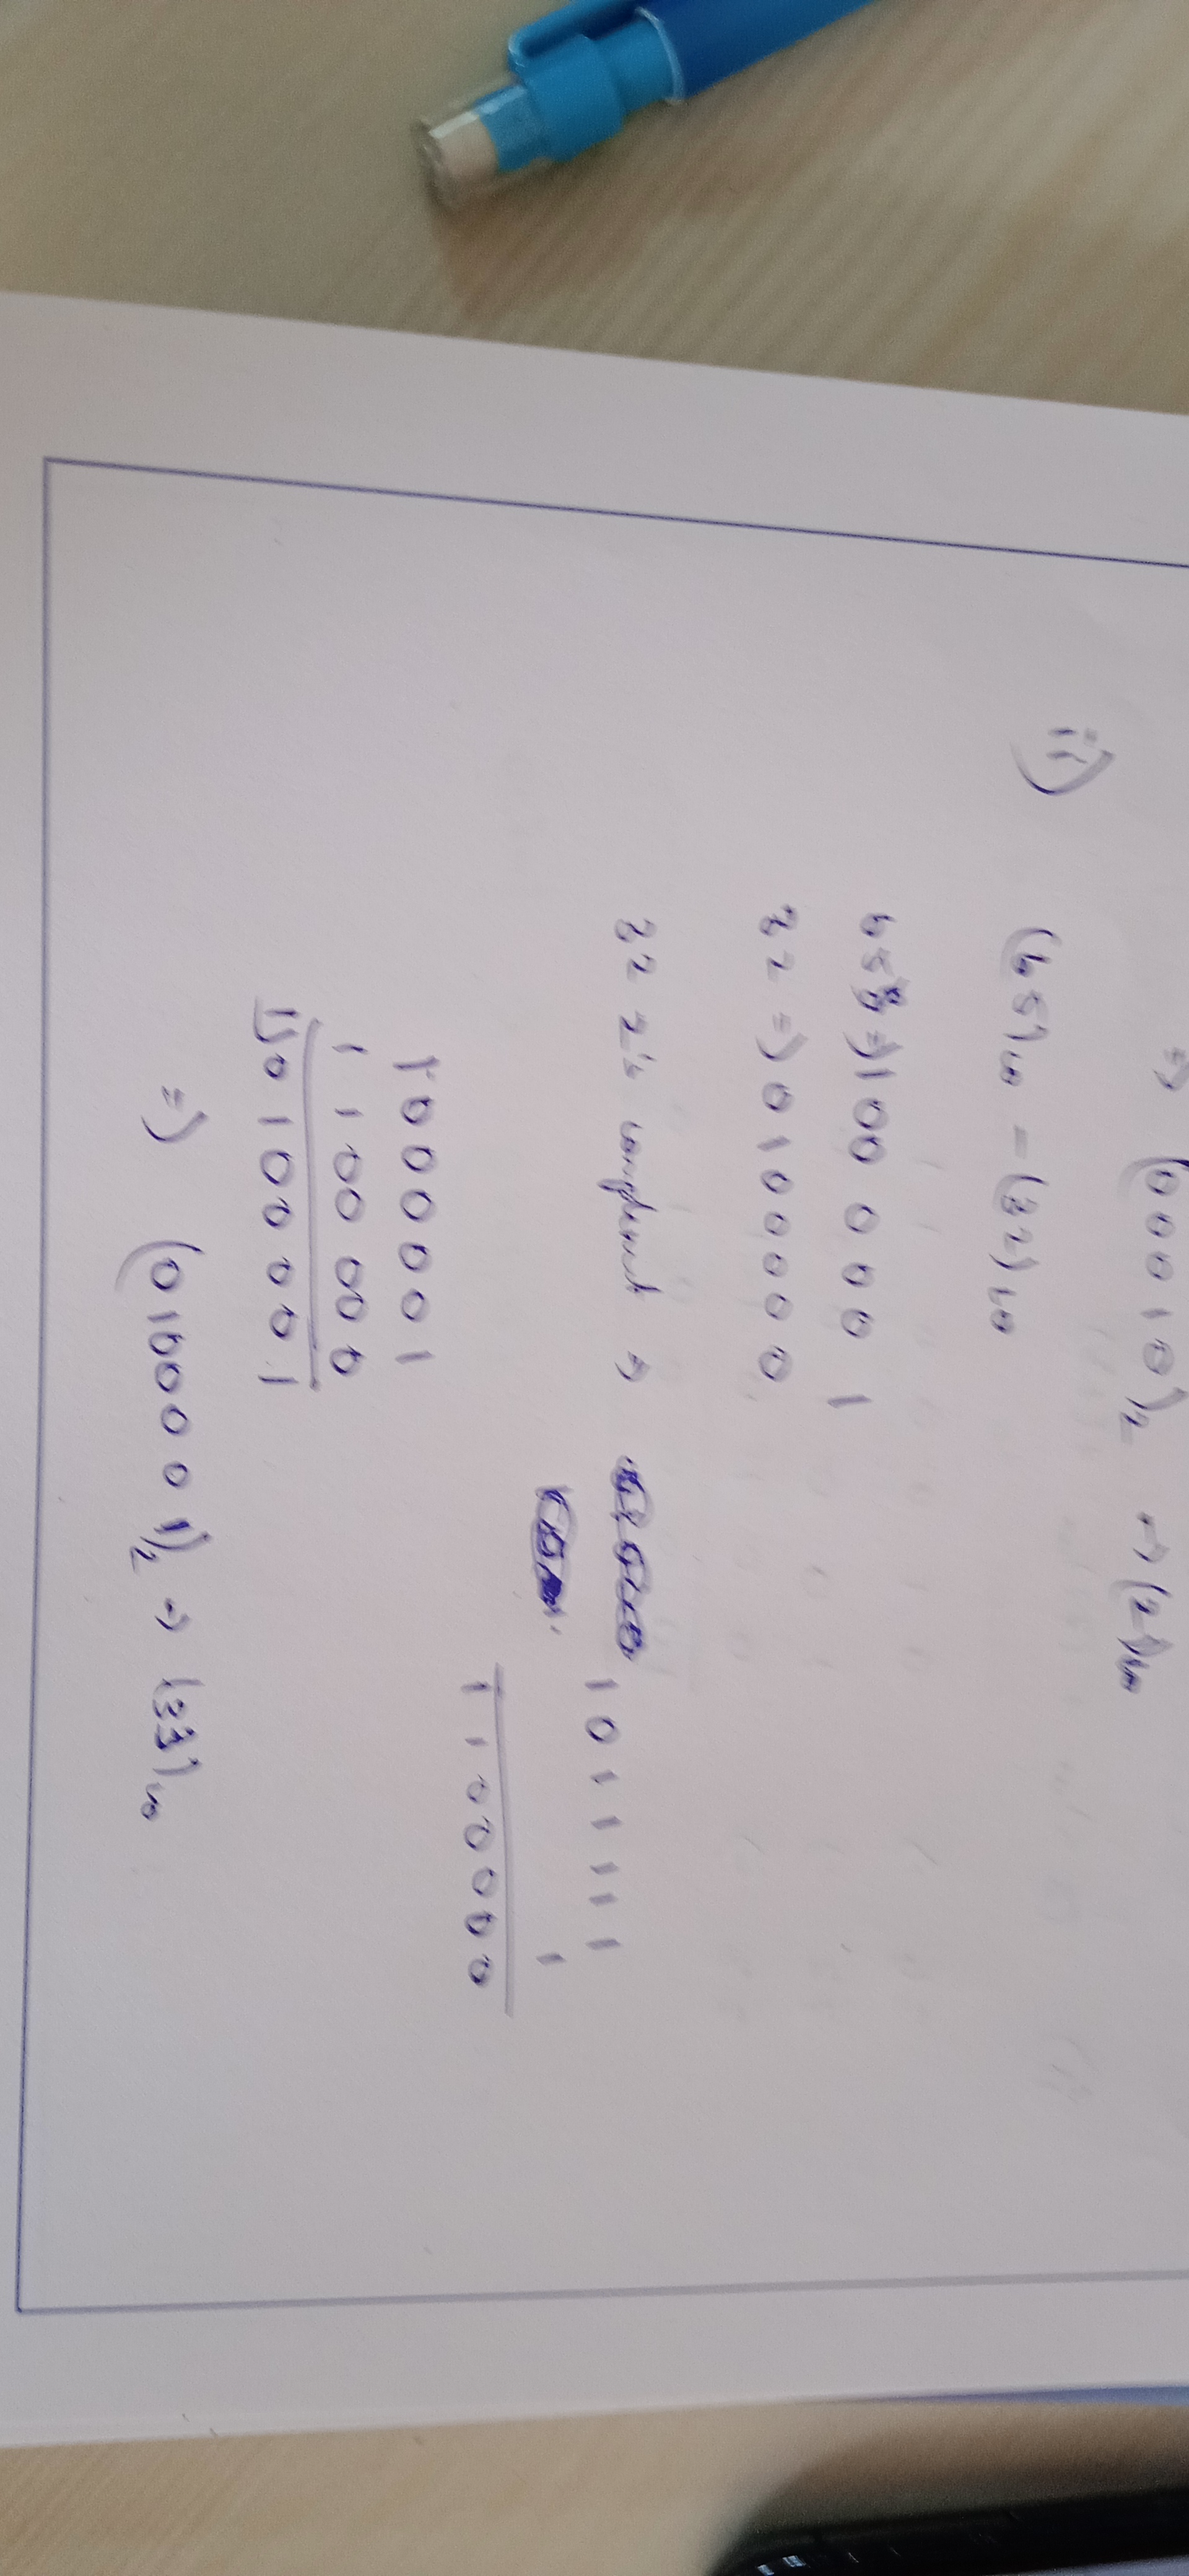 => (00010)₂ → (2)₁₀
ii) (65)₁₀ - (32)₁₀
65 => 1000001
32 => 0100000
32 2's complement => 1011111
1
1100000
1000001
1100000
1)0100001
=> (0100001)₂ → (33)₁₀